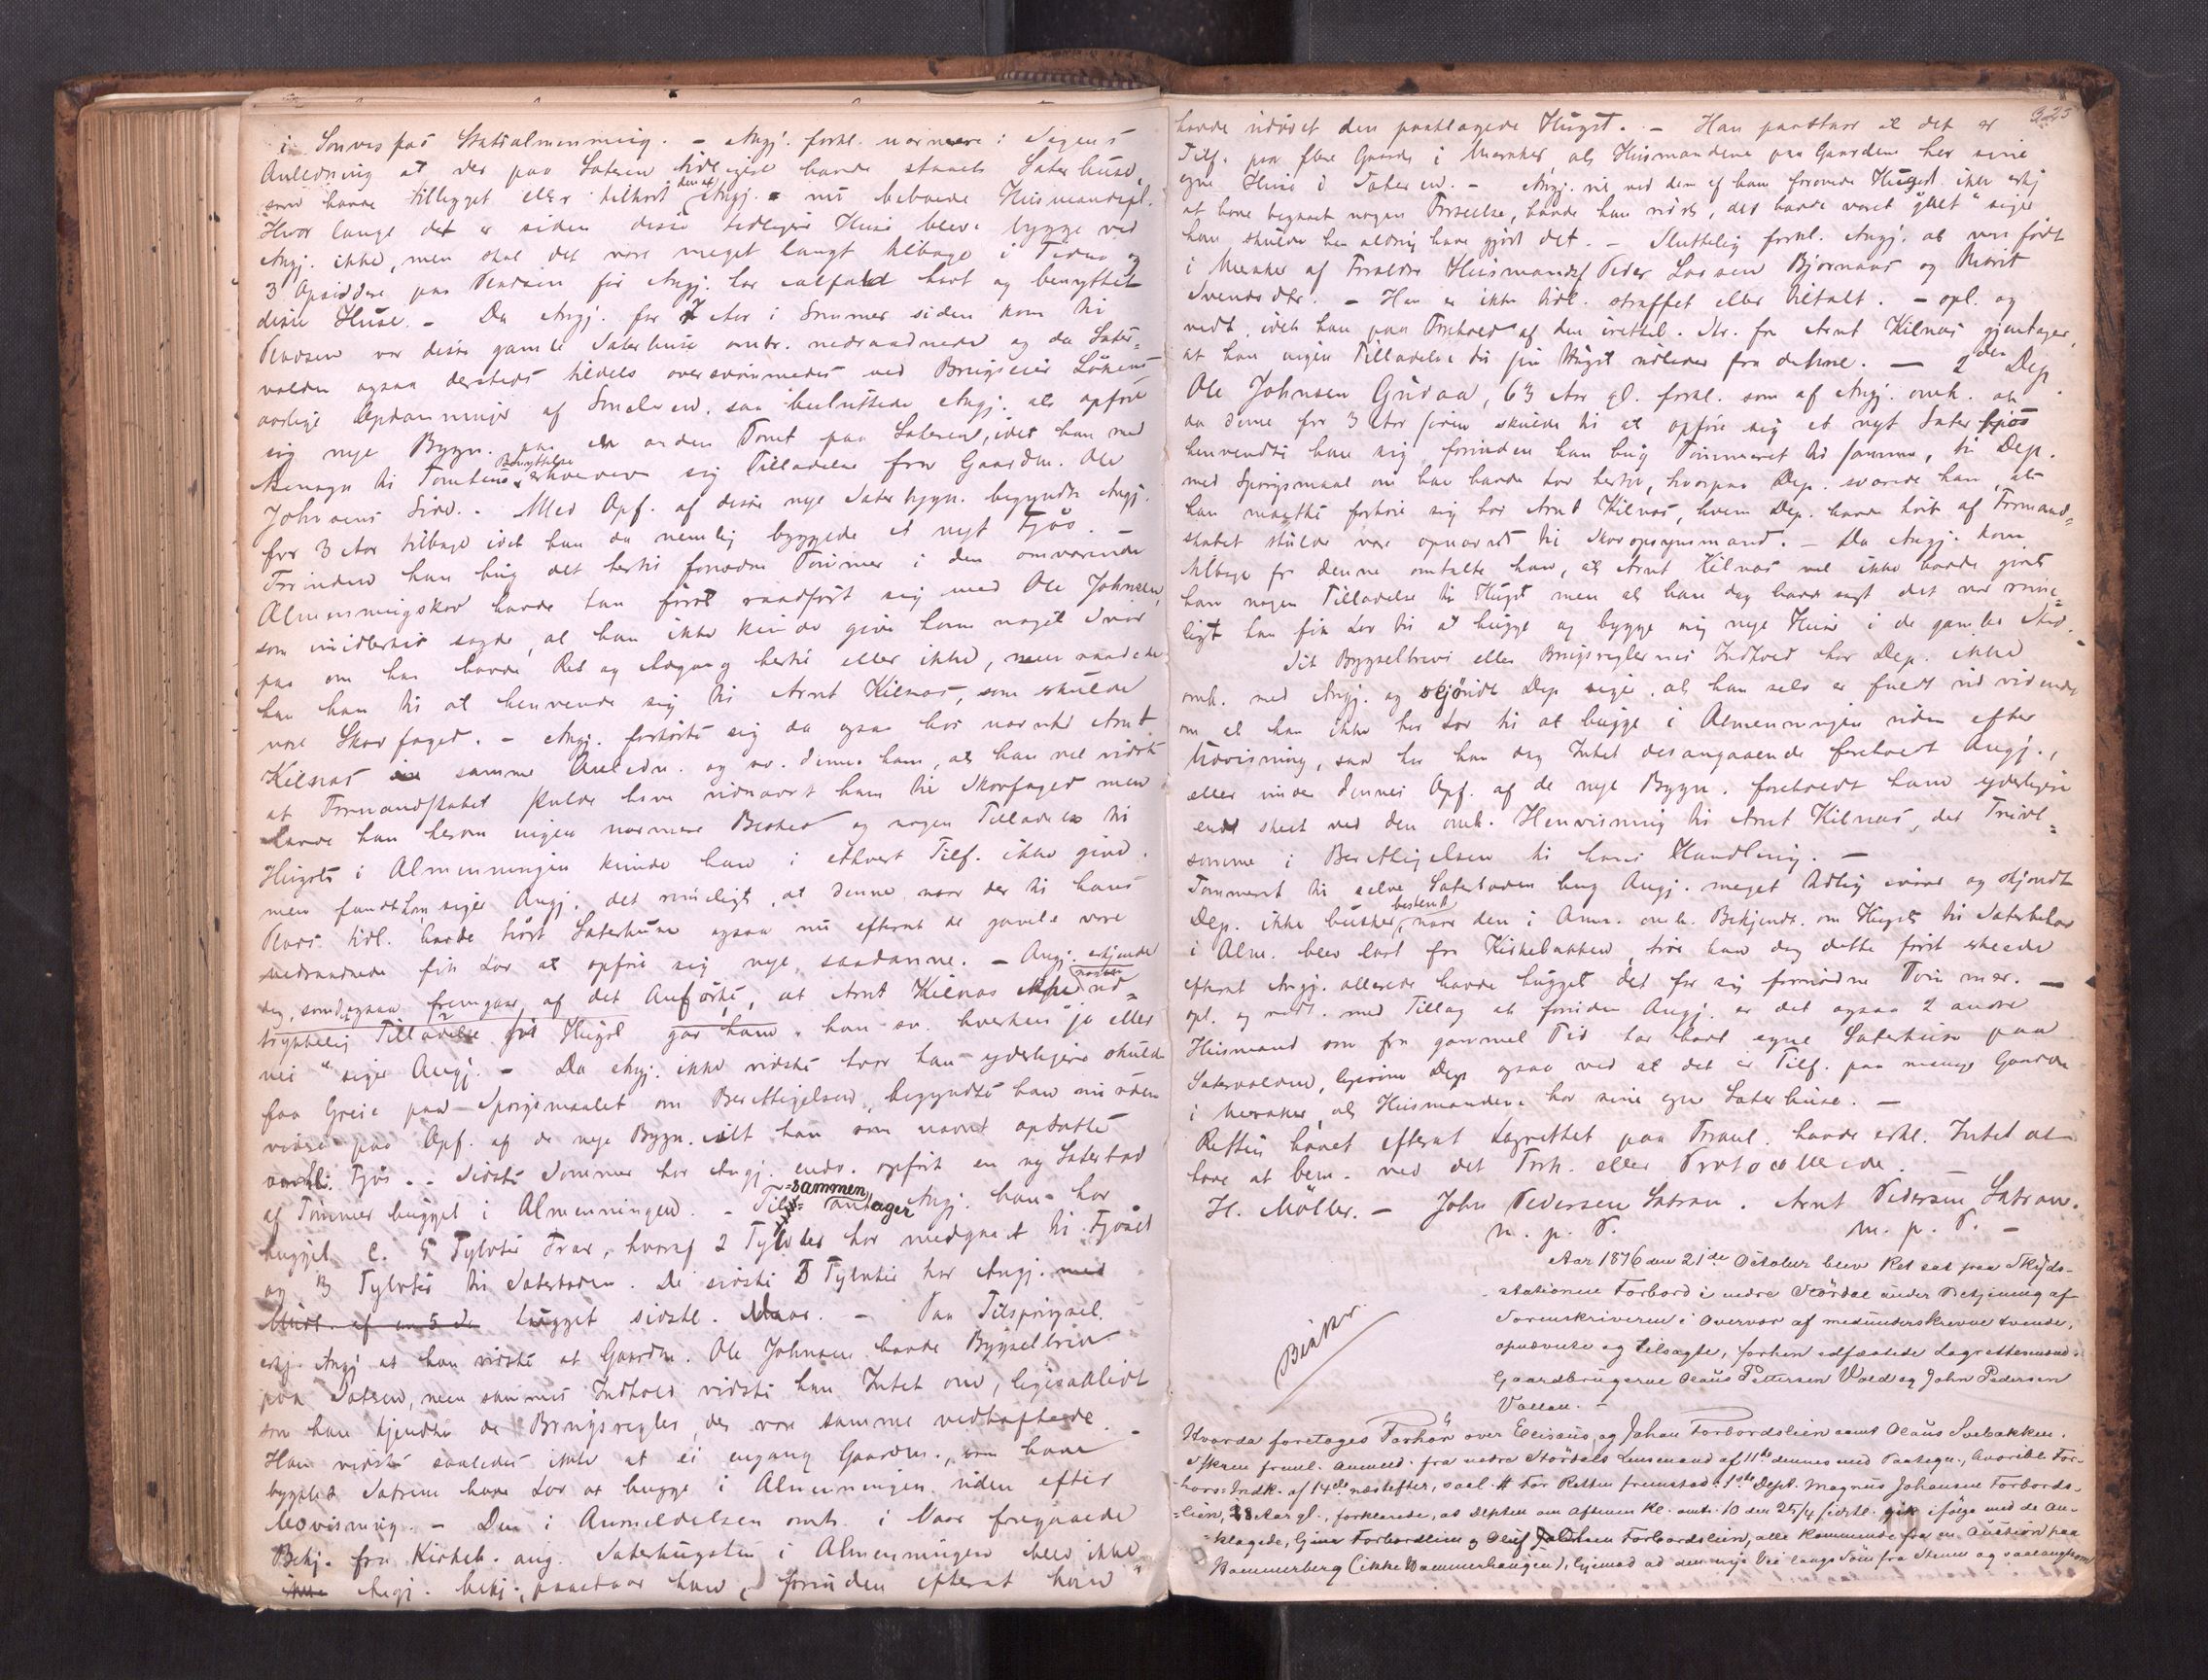 i Sonvesfos Statsalmenning. – Angj. forkl. nærmere: Degens
Anledning at der paa Sæteren tidligere havde staaet Sæterhuse,
som havde tillegget eller tilhørt den af Angj. nu beboede Huusmandspl.
Hvor længe det er siden disse tidligere Huse bleve bygget ved
Angj. ikke, men skal det være meget langt tilbage i Tiden og
3 Opsiddere paa Pladsen før Angj. har ialfald havt og benyttet
disse Huse. – Da Angj. for 7 Aar i Sommer siden kom til
Pladsen var disse gamle Sæterhuse omtr. nedraadnede og da Sæter-
volden ogsaa dersteds tildels oversvømmedes ved Brugseier
aarlige Opdæmninger af, saa besluttede Angj. at opføre
sig nye Bygn. paa en anden Tomt paa Sæteren, idet han med
Hensyn til Tomtens Benyttelse erhvervede sig Tilladelse fra Gaardm. Ole
Johnsens Side. – Med Opf. af disse nye Sæterbygn. begyndte Angj.
for 3 Aar tilbage idet han da nemlig byggede et nyt Fjøs –
Forinden han hug det hertil fornødne Tømmer i den omværende
Almenningskov havde han først raadført sig med Ole Johnsen,
som imidlertid sagde, at han ikke kunde give ham noget Svar
paa om han havde Ret og Adgang hertil eller ikke, men raadede
han ham til at henvende sig til Arnt Kilnæs, som skulde
være Skovfoged. – Angj. forhørte sig da ogsaa hos nævnte Arnt
Kilnæs i samme Anledn. og sv. denne ham, at han vel vidste
at Formandskabet skulde have udnævnt ham til Skovfoged men
havde han herom ingen nærmere Besked og nogen Tilladelse til
Hugst i Almenningen kunde han i ethvert Tilf. ikke give.
men fandt han, siger Angj. det rimeligt, at denne naar der til hans
Plads tidl. havde hørt Sæterhuse ogsaa nu efterat de gamle vare
nedraadnede fik Lov at opføre sig nye saadanne. – Angj. erkjender
dog, som ogsaa fremgaar af det Anførte, at Arnt Kilnæs ikke nogen ud-
trykkelig Tilladelse til Hugst gav ham. han sv. hverken "ja eller
nei" siger Angj. – Da Angj. ikke vidste hvor han yderligere skulde
faa Greie paa Spørgsmaalet om Berettigelsen, begyndte han nu uden
videre paa Opf. af de nye Bygn. idet han som nævnt opsatte
omhl. Fjøs. – Sidste Sommer har Angj. endv. opført en ny Sæterbod
af Tømmer hugget i Almenningen. – Til-sammen antager Angj. han har
hugget c. 5 Tylvter Træer, hvoraf 2 Tylvter har medgaaet til Fjøset
og 3 Tylvter til Sæterboden. De sidste 3 Tylvter har Angj.
hugget sidstl. Vaar. – Paa Tilspørgsel
erkj. Angj. at han vidste at Gaardm. Ole Johnsen havde Bygselbrev
paa Sæteren, men sammes Indhold vidste han Intet om, ligesaalidt
som han kjendte de Brugsregler, der vare samme vedhæftede.
Han vidste saaledes ikke at ei engang Gaardm., som havde
bygslet Sæteren have Lov at hugge i Almenningen uden efter
Udvisning. – Den i Anmeldelsen omh. i Vaar foregaaede
Bekj. fra Kirkeb. ang. Sæterhugsten i Almenningen blev ikke
Angj. bekj., paastaar han, forinden efterat han
225
havde udøvet den paaklagede Hugst. – Han paastaar at det er
Tilf. paa flere Gaarde i Meraker, at Huusmændene paa Gaardene har sine
egne Huse i Sæteren. – Angj. vil ved den af ham forøvede Hugst ikke erkj.
at have begaaet nogen Forseelse, havde han vidst, det havde været "galt" siger
han, skulde han aldrig have gjort det. – Sluttelig forkl. Angj. at være født
i Meraker af Forældre Huusmandsf. Peder Larsen Bjørnaas og Marit
Svendsdtr. – Han er ikke tidl. straffet eller tiltalt. – opl. og
vedt. idet han paa Forehold af den irettel. Skr. fra Arnt Kilnæs gjentager,
at han ingen Tilladelse til sin Hugst udleder fra denne. – 2den Dep.
Ole Johnsen Gudaa, 63 Aar gl. forkl. som af Angj. omh. at
da denne for 3 Aar siden skulde til at opføre sig et nyt Sæterfjøs
henvendte han sig, forinden han hug Tømmeret til samme, til Dep.
med Spørgsmaal om han havde Lov hertil, hvorpaa Dep. svarede ham, at
han maatte forhøre sig hos Arnt Kilnæs, hvem Dep. havde hørt af Formand-
skabet skulde være opnævnt til Skovopsynsmand. – Da Angj. kom
tilbage fra denne omtalte han, at Arnt Kilnæs vel ikke havde givet
ham nogen Tilladelse til Hugst men at han dog havde sagt det var rime-
ligt han fik Lov til at hugge og bygge sig nye Huse i de gamles Sted.
Sit Bygselbrevs eller Brugsreglernes Indhold har Dep. ikke
omh. med Angj. og skjøndt Dep. siger, at han selv er fuldt ud vidende
om at han ikke har Lov til at hugge i Almenningen uden efter
Udvisning, saa har han dog Intet desangaaende foreholdt Angj.,
eller under dennes Opf. af de nye Bygn. foreholdt ham yderligere
end skeet ved den omh. Henvisning til Arnt Kilnæs, det Tvivl-
somme i Berettigelsen til hans Handling. –
Tømmeret til selve Sæterboden hug Angj. meget tidlig ivaar og skjøndt
Dep. ikke husker bestemt, naar den i Anm. omh. Bekjendt. om Hugst til Sæterbehov
i Alm. blev læst fra Kirkebakken, tror han dog dette først skeede
efterat Angj. allerede havde hugget det for sig fornødne Tømmer. –
opl. og vedt. med Tillæg at foruden Angj. er det ogsaa 2 andre
Huusmænd som fra gammel Tid har havt egne Sæterhuse paa
Sætervolden, ligesom Dep. ogsaa ved at det er Tilf. paa mange Gaarde
i Meraker, at Huusmændene har sine egne Sæterhuse. –
Retten hævet efterat Lagrettet paa Foranl. havde erkl. Intet at
have at bem. ved det Forh. eller Protocollerede. –
H. Möller. – John Pedersen Sætran. Arnt Pedersen Sætran.
m. p. P. m. p. P. –
Aar 1876 den 21de October blev Ret sat paa Skyds-
stationen Forbord i nedre Stördal under Betjening af
Sorenskriveren i Overvær af medunderskrevne tvende,
opnævnte og tilsagte, forhen edfæstede Lagrettesmænd:
Gaardbrugerne Olaus Pettersen Vold og John Pedersen
Vollan. –
Hvorda foretoges Forhör over Elisæus og Johan Forbordslien samt Olaus Svebakken.
Aktren freml. Anmeld. fra nedre Stördals Lensmand af 11te dennes med Paategn., Anordtl. For-
hörs-Indk. af 14de næstefter, saal. # For Retten fremstod: 1ste Dept. Magnus Johansen Forbords-
lien, 23 Aar gl., forklarede, at Depten om Aftenen Kl. omtr. 10 den 25/4 sidstl. gik ifölge med de An-
klagede, Gina Forbordslien og Oluf Johansen Forbordslien, alle kommende fra en Auction paa
Hammerberg (ikke Hammerhaugen), hjemad ad den nye Vei langs Söen fra Stenen og saalangt som